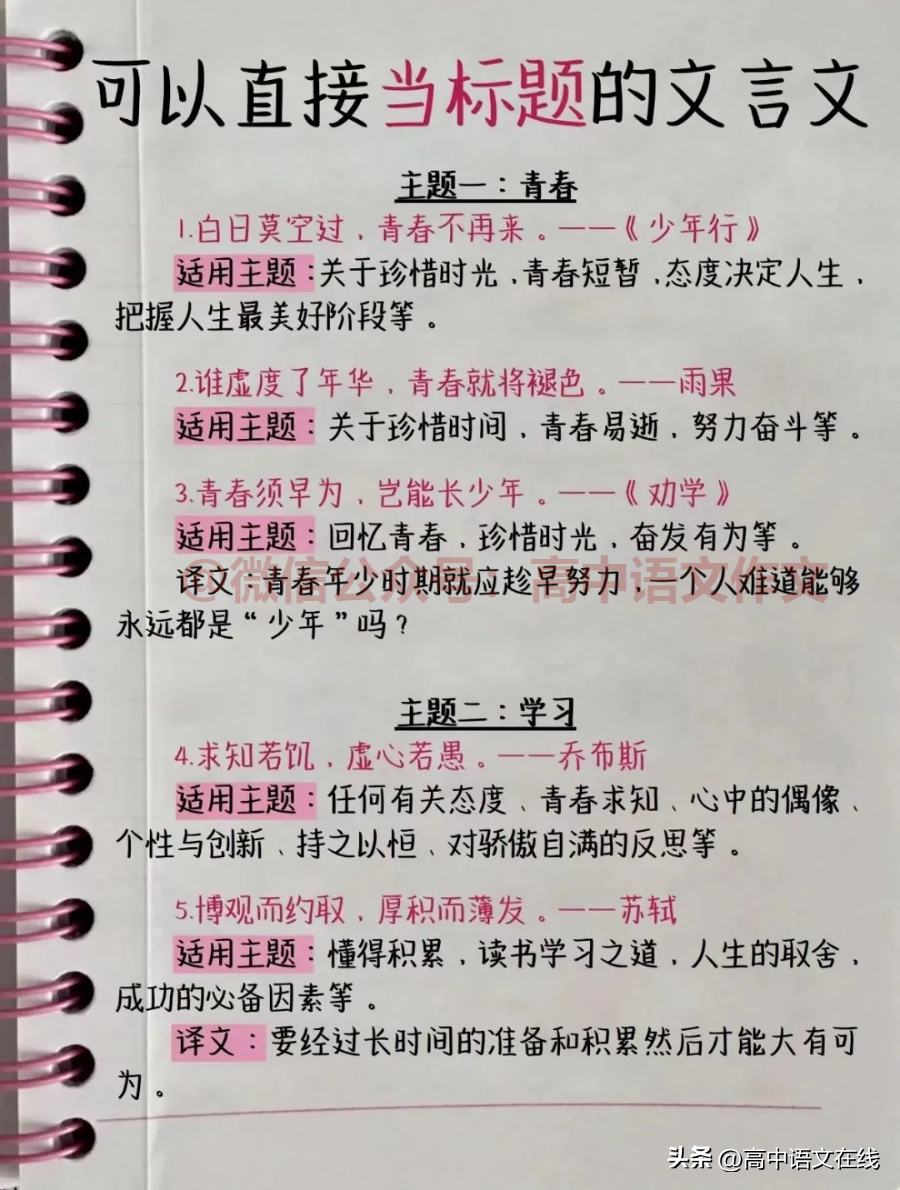 可以直接当标题的文言文
主题一：青春
1.白日莫空过，青春不再来。——《少年行》
适用主题：关于珍惜时光，青春短暂，态度决定人生，
把握人生最美好阶段等。
2.谁虚度了年华，青春就将褪色。——雨果
适用主题：关于珍惜时间，青春易逝，努力奋斗等。
3.青春须早为，岂能长少年。——《劝学》
适用主题：回忆青春，珍惜时光，奋发有为等。
@微信公众号：高中语文作文
译文：青春年少时期就应趁早努力，一个人难道能够
永远都是“少年”吗？
主题二：学习
4.求知若饥，虚心若愚。——乔布斯
适用主题：任何有关态度、青春求知、心中的偶像、
个性与创新、持之以恒、对骄傲自满的反思等。
5.博观而约取，厚积而薄发。——苏轼
适用主题：懂得积累，读书学习之道，人生的取舍，
成功的必备因素等。
译文：要经过长时间的准备和积累然后才能大有可
为。
头条 @高中语文在线